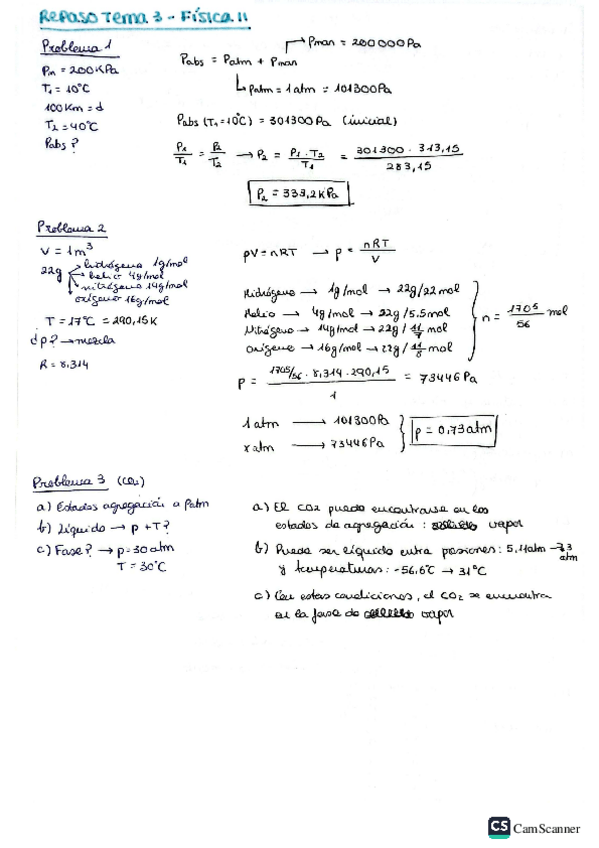 Repaso Tema 3 - Física II
Problema 1
Pm = 200KPa
T1 = 10°C
100Km = d
T2 = 40°C
Pabs?
Pabs = Patm + Pman
Pman = 200000Pa
Patm = 1 atm = 101300Pa
Pabs (T1 = 10°C) = 301300 Pa (inicial)
P1/T1 = P2/T2 → P2 = P1 · T2 / T1 = 301300 · 313,15 / 283,15
P2 = 333,2KPa
Problema 2
V = 1m³
22g
hidrógeno 1g/mol
helio 4g/mol
nitrógeno 14g/mol
oxígeno 16g/mol
T = 17°C = 290,15K
¿p? → mezcla
R = 8,314
pV = nRT → p = nRT / V
Hidrógeno → 1g/mol → 22g/22 mol
Helio → 4g/mol → 22g/5.5mol
Nitrógeno → 14g/mol → 22g/ 11/7 mol
Oxígeno → 16g/mol → 22g/ 11/8 mol
n = 1705/56 mol
p = 1705/56 · 8,314 · 290,15 / 1 = 73446 Pa
1 atm → 101300Pa
x atm → 73446Pa
p = 0,73 atm
Problema 3 (CO2)
a) Estados agregación a Patm
b) Líquido → p + T?
c) Fase? → p = 30 atm
T = 30°C
a) El CO2 puede encontrarse en los
estados de agregación : vapor
b) Puede ser líquido entre presiones: 5,11atm - 73 atm
y temperaturas: -56,6°C → 31°C
c) En estas condiciones, el CO2 se encuentra
en la fase de vapor
CS CamScanner